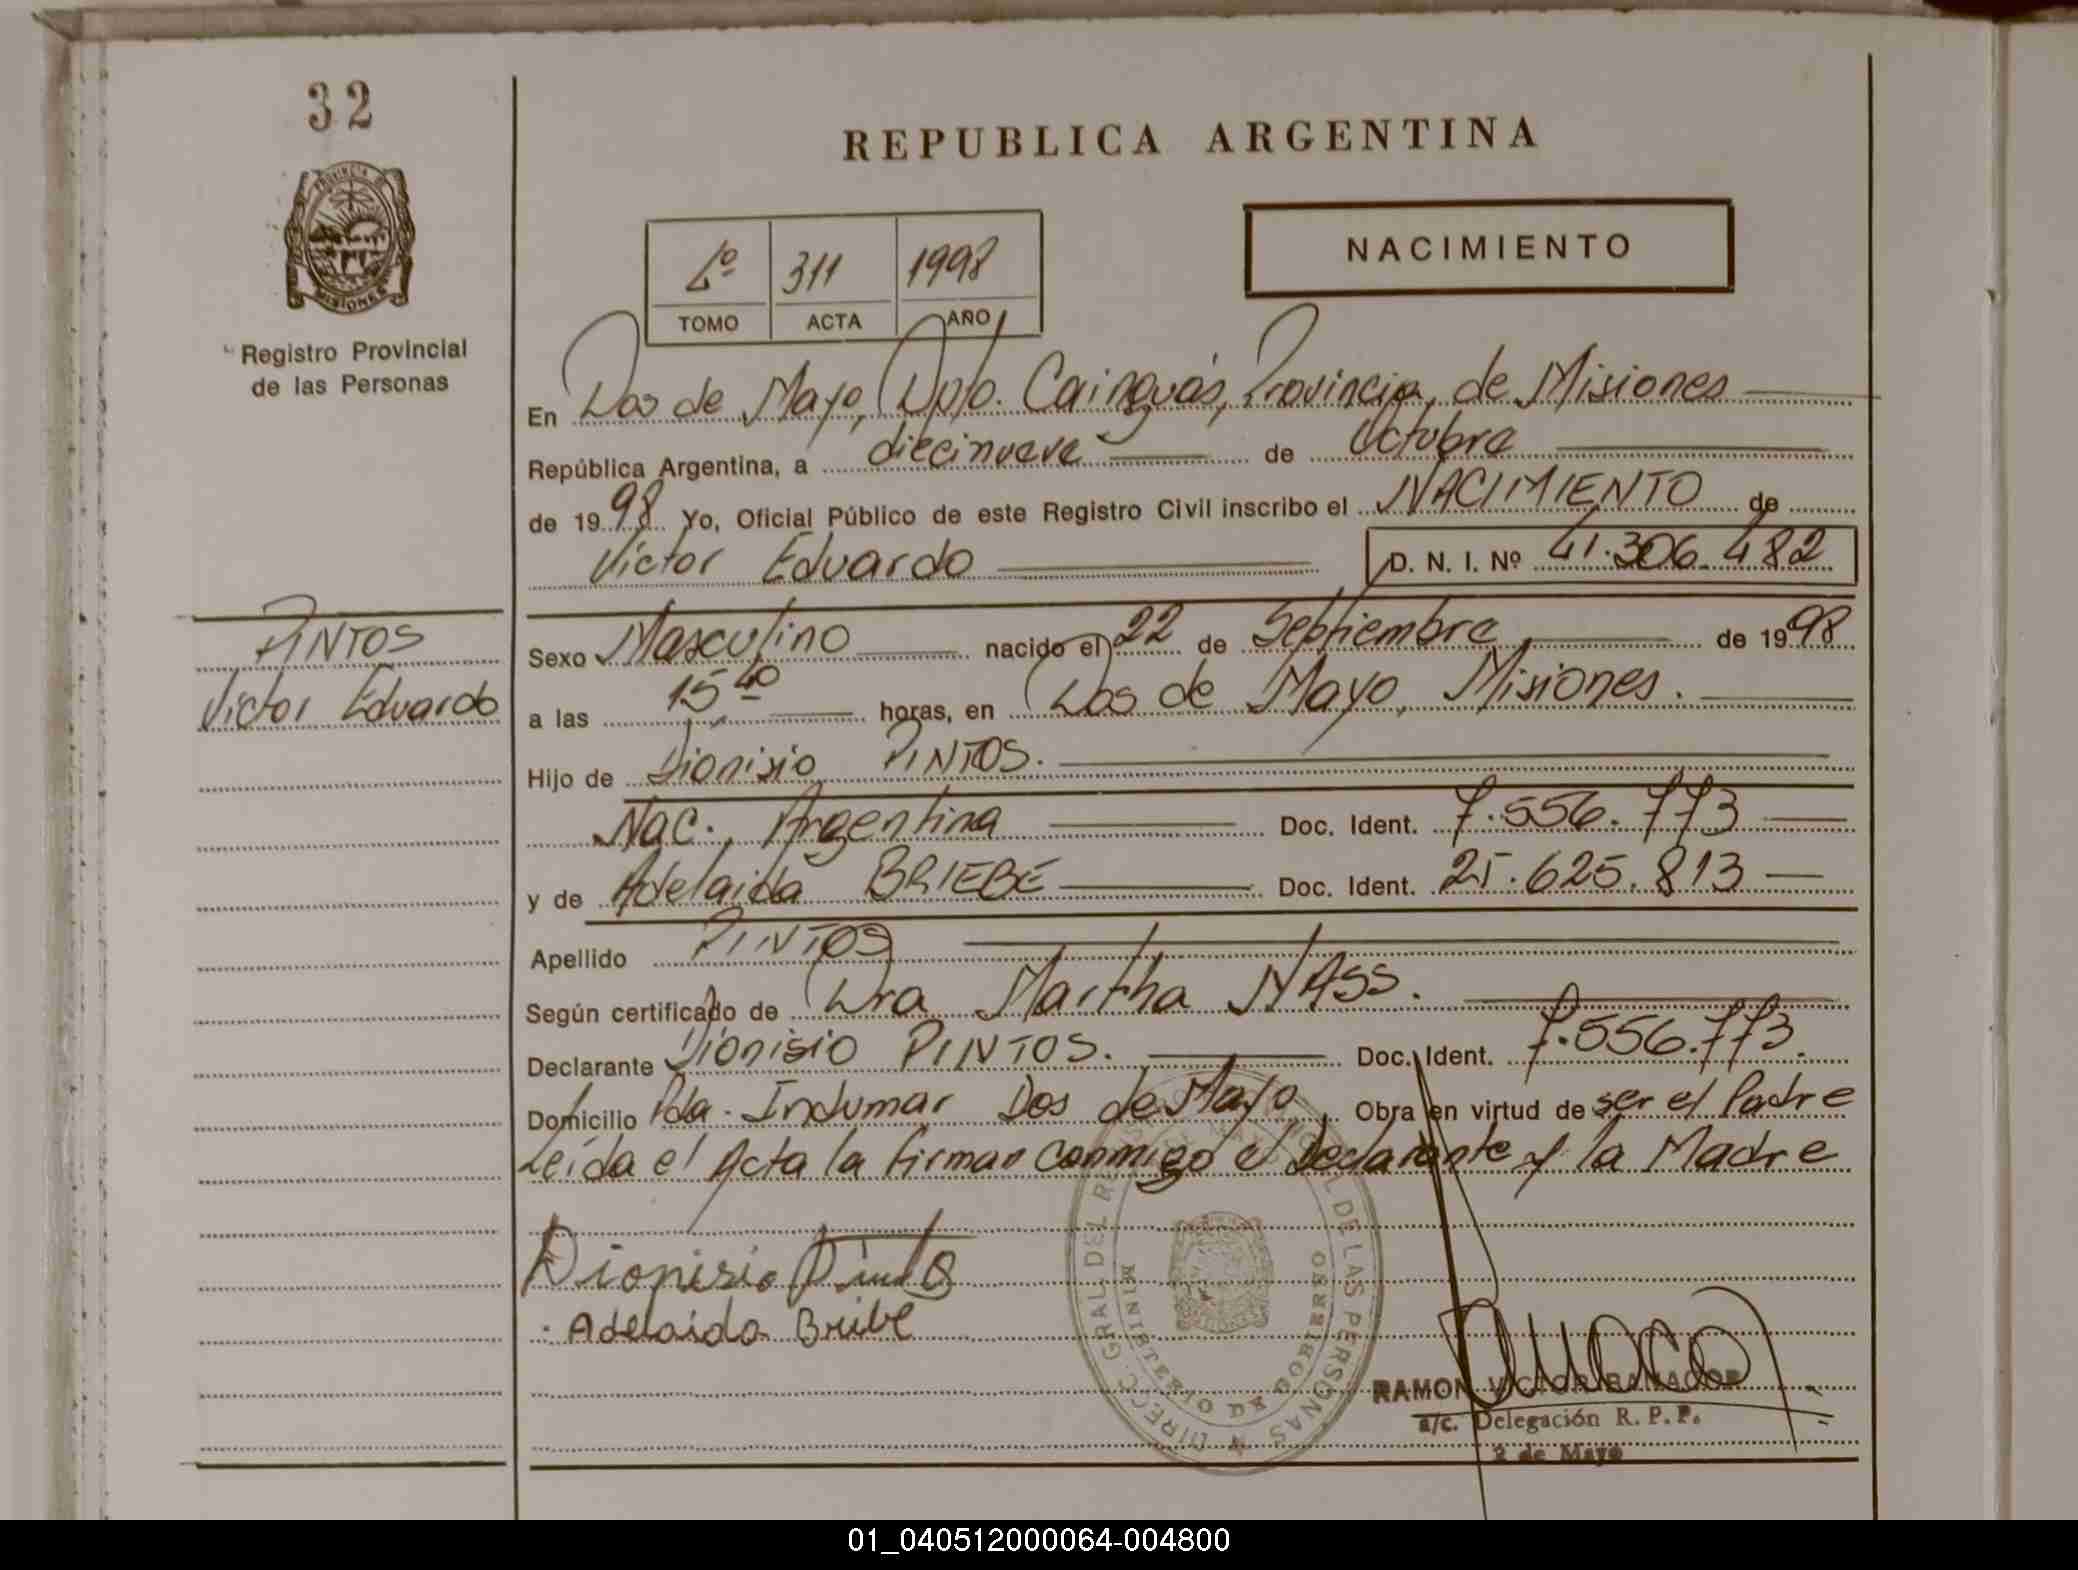 32
REPUBLICA ARGENTINA
PROVINCIA DE
MISIONES
Registro Provincial
de las Personas
NACIMIENTO
311 1998
TOMO ACTA AÑO
En Dos de Mayo, Dpto. Cainguás, Provincia de Misiones
República Argentina, a diecinueve de Octubre
de 1998 Yo, Oficial Público de este Registro Civil inscribo el NACIMIENTO de
Víctor Eduardo D. N. I. Nº 41.306.482
PINTOS
Víctor Eduardo
Sexo Masculino nacido el 22 de Septiembre de 1998
a las 15 40 horas, en Dos de Mayo, Misiones.
Hijo de Dionisio PINTOS.
Nac. Argentina Doc. Ident. 7.556.773
y de Adelaida BRIEBE Doc. Ident. 25.625.813
Apellido PINTOS
Según certificado de Dra Martha NASS.
Declarante Dionisio PINTOS. Doc. Ident. 7.556.773.
Domicilio Pda. Indumar Dos de Mayo, Obra en virtud de ser el Padre
Leída el Acta la firman conmigo el Declarante y la Madre
Dionisio Pinto
Adelaida Bribe
DIRECC. GRAL. DEL DE LAS PERSONAS
MINISTERIO DE GOBIERNO
RAMON VICTOR
a/c. Delegación R. P. P.
2 de Mayo
01_040512000064-004800